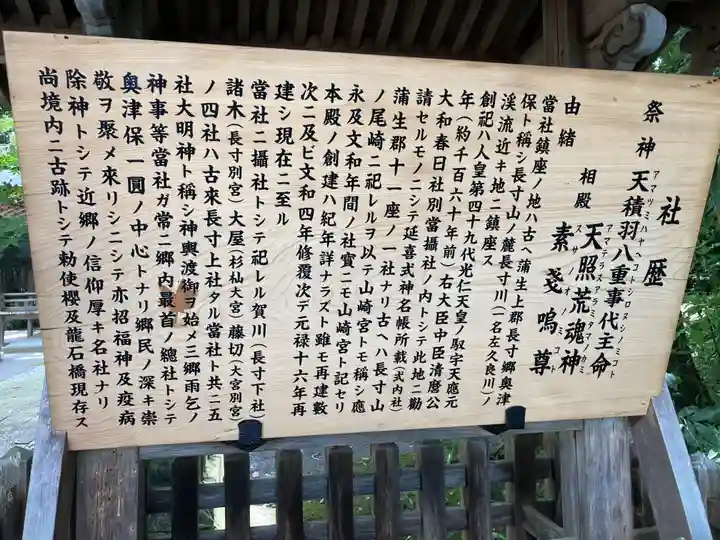 社歴
祭神 天積羽八重事代主命
アマツミハヤヘコトシロヌシノミコト
相殿 天照荒魂神
アマテラスアラミタノカミ
素戔嗚尊
スサノオノミコト
由緒
當社鎮座ノ地ハ古ヘ蒲生上郡長寸郷奥津
保ト稱シ長寸山ノ麓長寸川(一名左久良川)ノ
渓流近キ地ニ鎮座ス
創祀ハ人皇第四十九代光仁天皇ノ馭宇天應元
年(約千百六十年前)右大臣中臣清麿公
大和春日社別當攝社ノ内トシテ此地ニ勸
請セルモノニシテ延喜式神名帳所載(式内社)
蒲生郡十一座ノ一社ナリ古ヘハ長寸山
ノ尾崎ニ祀レルヲ以テ山崎宮トモ稱シ應
永及文和年間ノ社寳ニモ山崎宮ト記セリ
本殿ノ創建ハ紀年詳ナラズト雖モ再建數
次ニ及ビ文和四年修覆次デ元禄十六年再
建シ現在ニ至ル
當社ニ攝社トシテ祀レル賀川(長寸下社)
諸木(長寸別宮)大屋(杉杣大宮)藤切(大宮別宮)
ノ四社ハ古來長寸上社タル當社ト共ニ五
社大明神ト稱シ神輿渡御ヲ始メ三郷雨乞ノ
神事等當社ガ常ニ郷内最首ノ總社トシテ
奥津保一圓ノ中心トナリ郷民ノ深キ崇
敬ヲ聚メ來リシニシテ亦招福神及疫病
除神トシテ近郷ノ信仰厚キ名社ナリ
尚境内ニ古跡トシテ勅使櫻及龍石橋現存ス